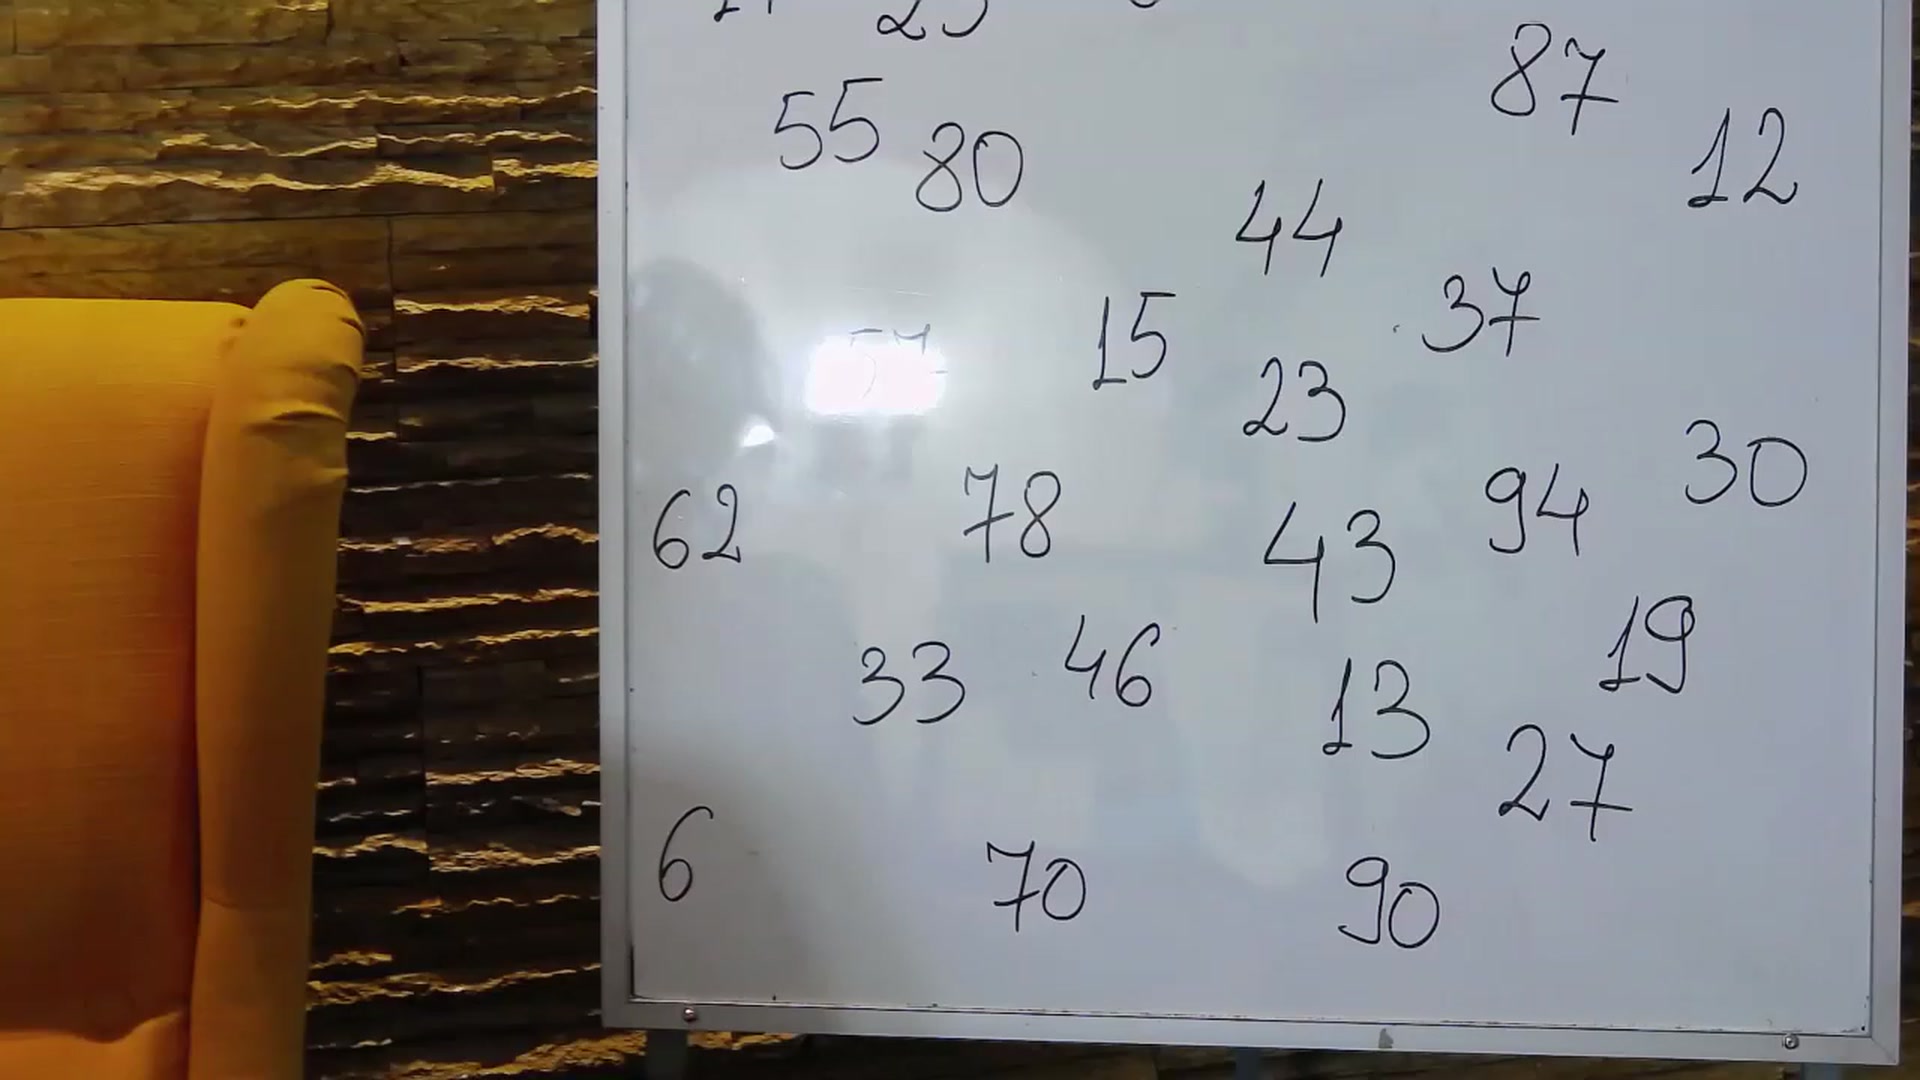 87
55
80
12
44
37
15
23
30
94
62
78
43
19
33
46
13
27
6
70
90